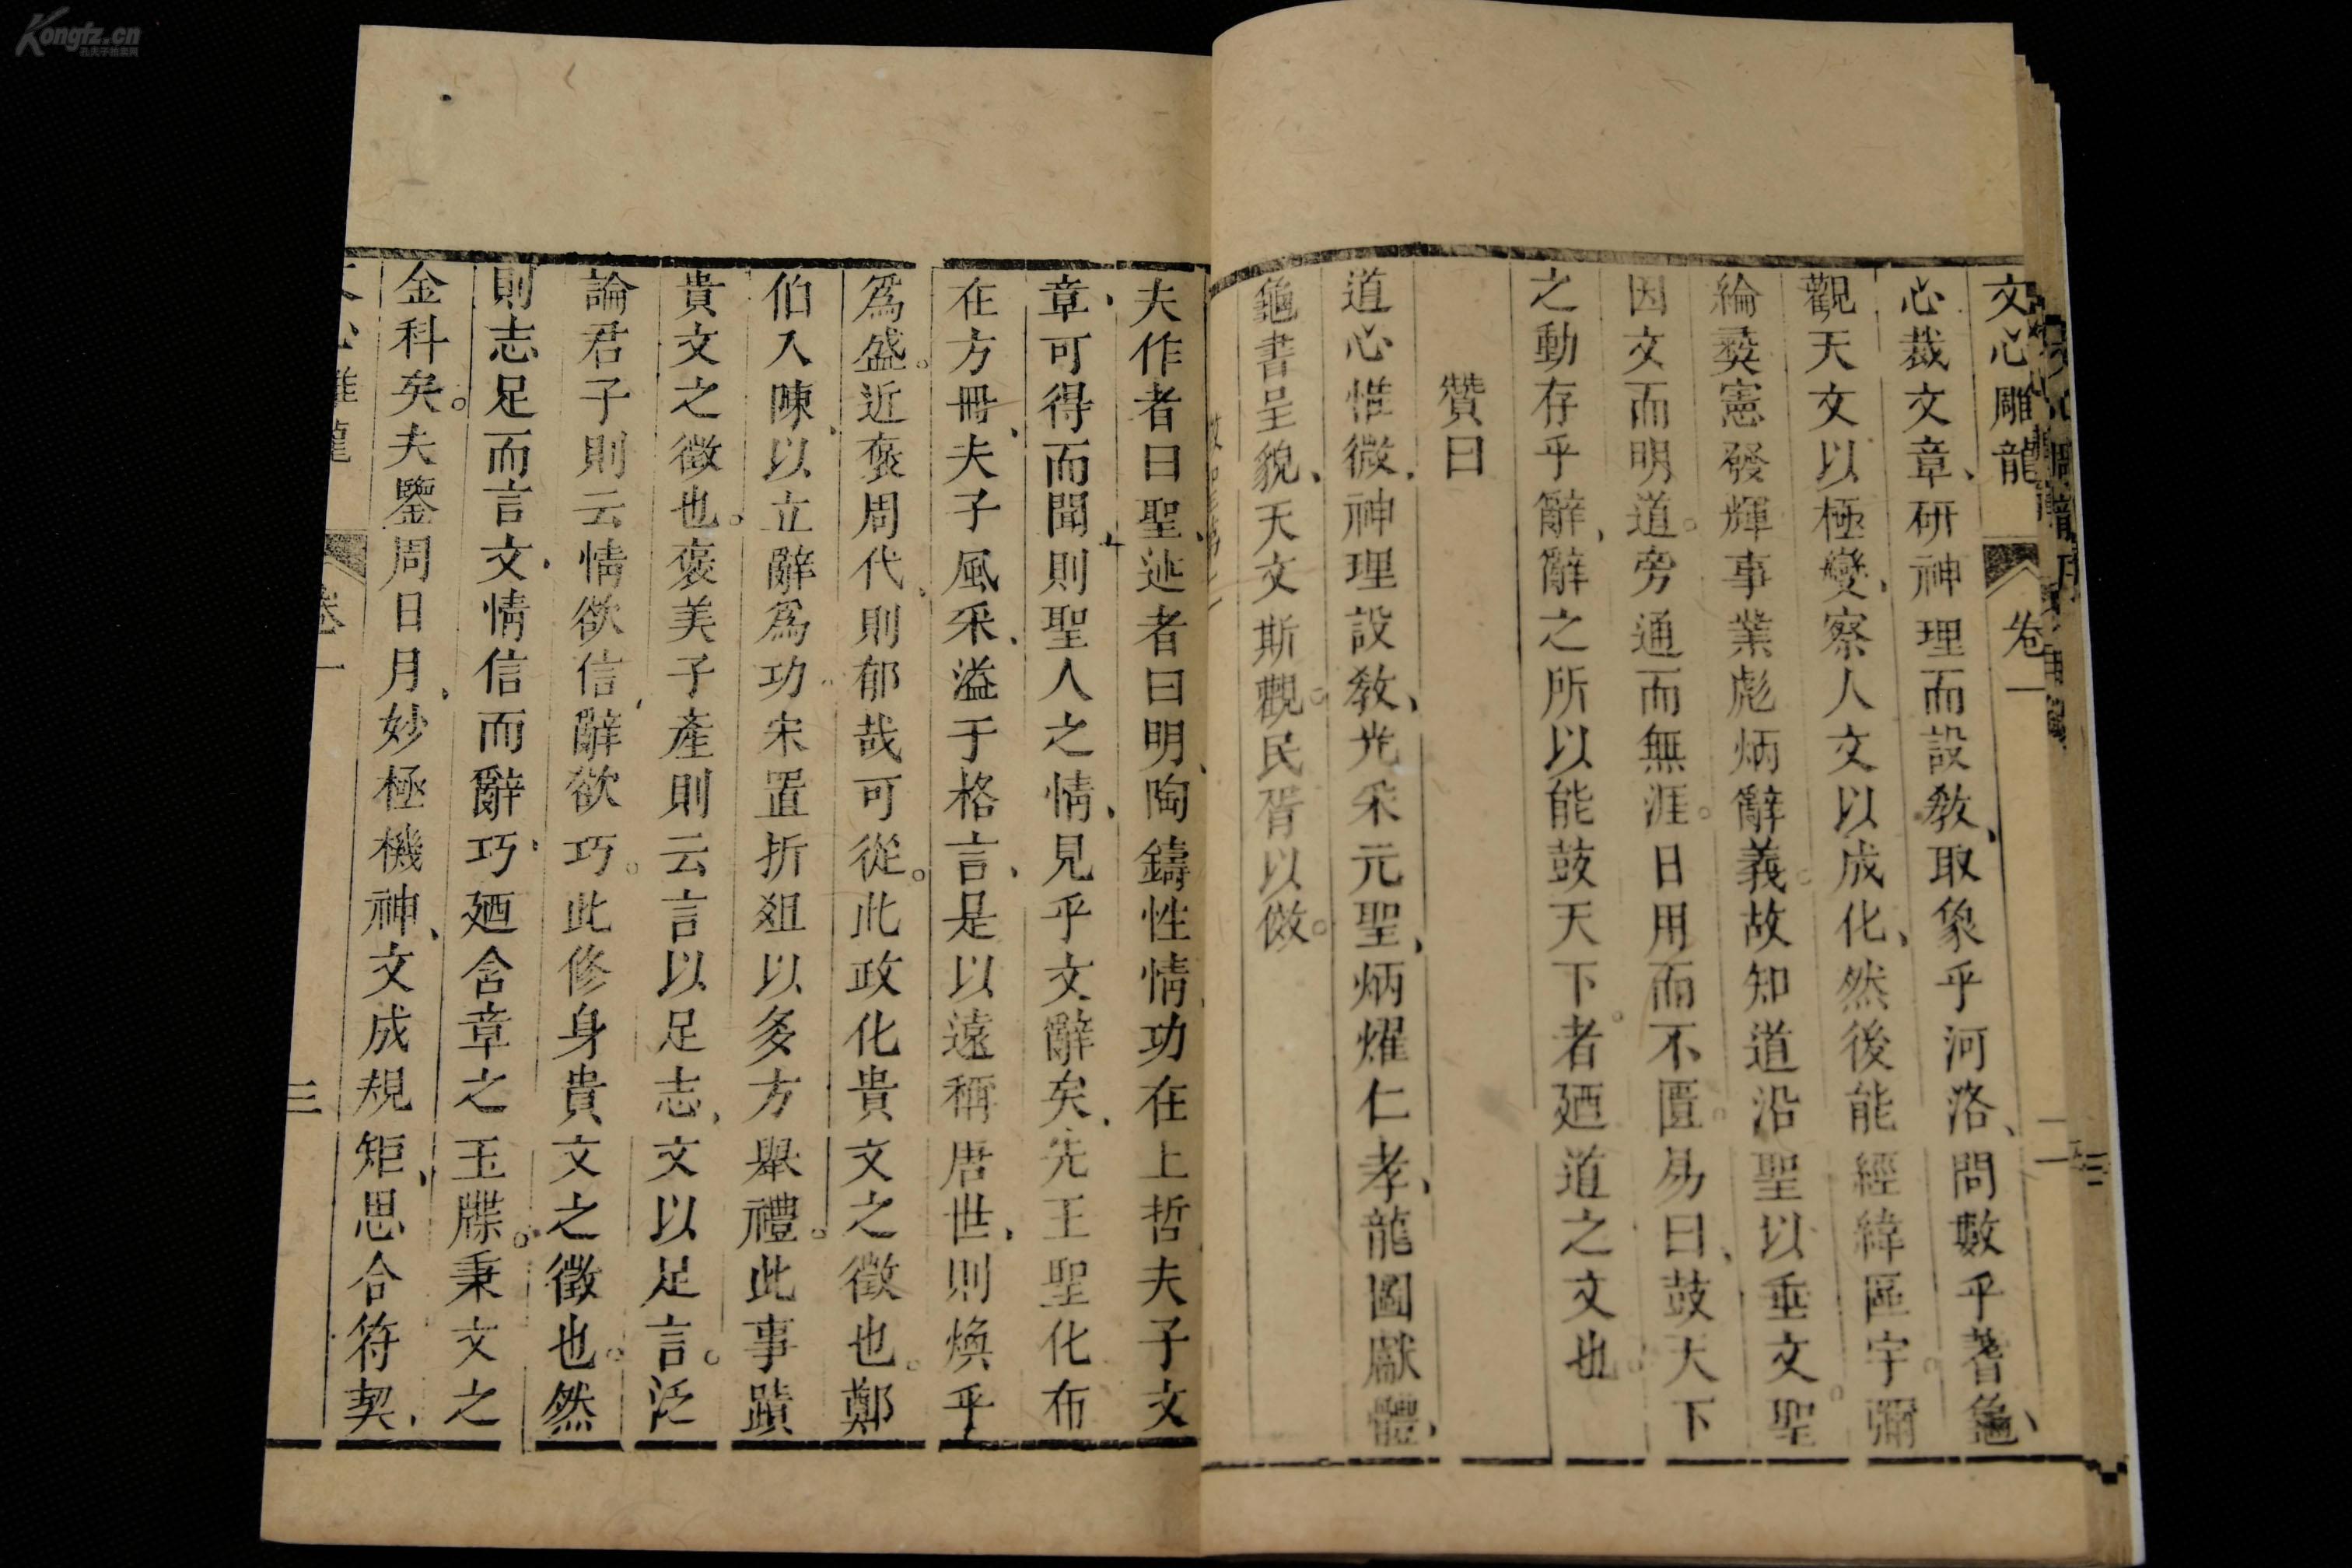 Kongfz.cn
孔夫子拍卖网
文心雕龍 卷一 二
心裁文章、研神理而設教、取象乎河洛、問數乎蓍龜、
觀天文以極變、察人文以成化、然後能經緯區宇。彌
綸彝憲發輝事業彪炳辭義。故知道沿聖以垂文。聖
因文而明道。旁通而無涯。日用而不匱。易曰、鼓天下
之動存乎辭、辭之所以能鼓天下。者廼道之文也。
贊曰
道心惟微、神理設教、光采元聖、炳燿仁孝、龍圖獻體、
龜書呈貌、天文斯觀。民胥以傚。
夫作者曰聖、述者曰明、陶鑄性情、功在上哲夫子文
章、可得而聞、則聖人之情、見乎文辭矣、先王聖化布
在方冊、夫子風采、溢于格言、是以遠稱唐世、則煥乎
爲盛。近褒周代、則郁哉可從。此政化貴文之徵也。鄭
伯入陳、以立辭爲功。宋置折俎以多方舉禮。此事蹟
貴文之徵也。褒美子產則云言以足志、文以足言。泛
論君子則云情欲信、辭欲巧。此修身貴文之徵也。然
則志足而言文、情信而辭巧、廼含章之玉牒。秉文之
金科矣。夫鑒周日月、妙極機神、文成規矩、思合符契、
龍 卷一 三